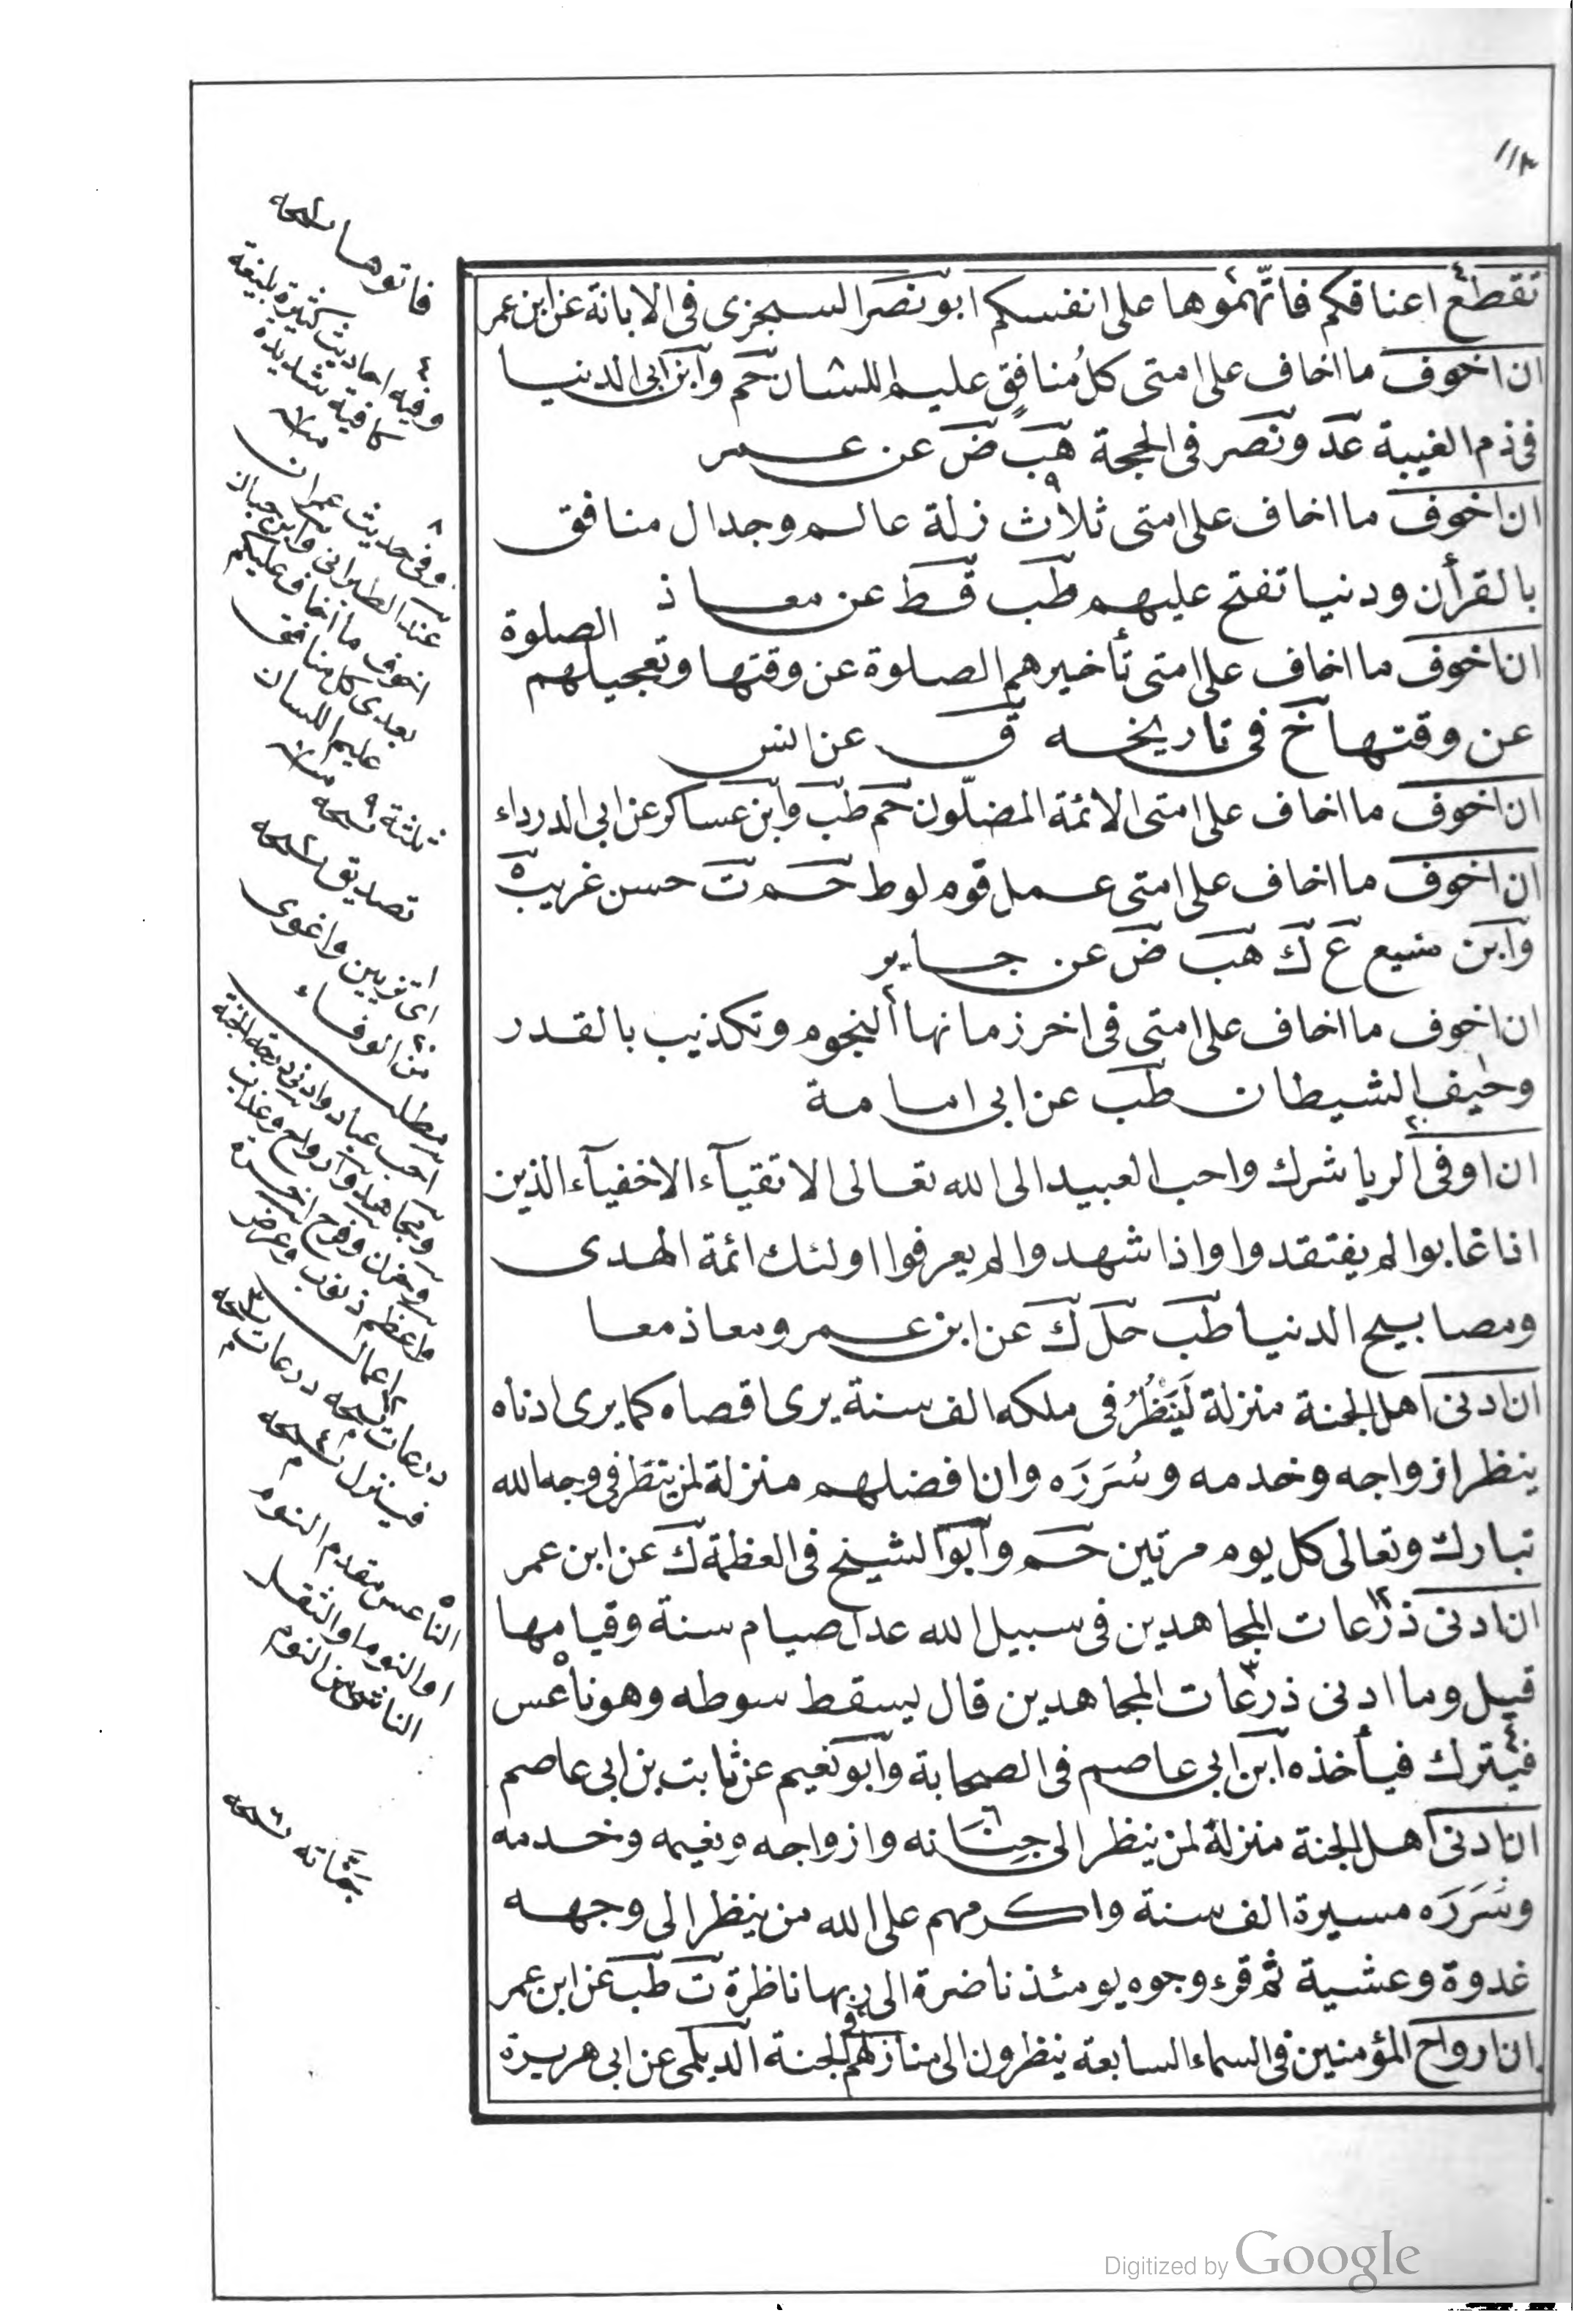 ١١٣
تقطع اعناقكم فاتّهموها على انفسكم ابو نصر السجزى فى الابانة عن ابن عمر
ان اخوف ما اخاف على امتى كل مُنافقٍ عليم اللسان حم وابن ابى الدنيا
فى ذم الغيبة عد ونصر فى الحجة هب ض عن عمر
ان اخوف ما اخاف على امتى ثلاث زلة عالم وجدال منافق
بالقرأن ودنيا تفتح عليهم طب قط عن معاذ
ان اخوف ما اخاف على امتى تأخيرهم الصلوة عن وقتها وتعجيلهم الصلوة
عن وقتها خ فى تاريخه ق عن انس
ان اخوف ما اخاف على امتى الائمة المضلّون حم طب وابن عساكر عن ابى الدرداء
ان اخوف ما اخاف على امتى عمل قوم لوط حم ت حسن غريب ه
وابن منيع ع ك هب ض عن جابر
ان اخوف ما اخاف على امتى فى اخر زمانها النجوم وتكذيب بالقدر
وحيف الشيطان طب عن ابى امامة
ان اوفى الريا شرك واحب العبيد الى الله تعالى الاتقيآء الاخفيآء الذين
اذا غابوا لم يفتقدوا واذا شهدوا لم يعرفوا اولئك ائمة الهدى
ومصابيح الدنيا طب حل ك عن ابن عمر ومعاذ معا
ان ادنى اهل الجنة منزلة لَيَنْظُرُ فى ملكه الف سنة يرى اقصاه كما يرى ادناه
ينظر ازواجه وخدمه وسُرَرَه وان افضلهم منزلة لمن ينظر فى وجه الله
تبارك وتعالى كل يوم مرتين حم وابو الشيخ فى العظمة ك عن ابن عمر
ان ادنى ذرعات المجاهدين فى سبيل الله عدل صيام سنة وقيامها
قيل وما ادنى ذرعات المجاهدين قال ليسقط سوطه وهو ناعس
فيترك فيأخذه ابن ابى عاصم فى الصحابة وابو نعيم عن ثابت بن ابى عاصم
ان ادنى اهل الجنة منزلة لمن ينظر الى جِنَانه وازواجه ونعيمه وخدمه
وسُرَرَه مسيرة الف سنة واكرمهم على الله من ينظر الى وجهه
غدوة وعشية ثم قرء وجوه يومئذ ناضرة الى ربها ناظرة ت طب عن ابن عمر
ان ارواح المؤمنين فى السماء السابعة ينظرون الى منازلهم فى الجنة الديلمى عن ابى هريرة
فاتوها نسخه
وفيه احاديث كثيرة بليغة
كافية شديدة
منه
وفى حديث عمران
عند الطبرانى وابن حبان
اخوف ما اخاف عليكم
بعدى كل منافق
عليم اللسان
منه
ثلثة نسخه
تصديق نسخه
اى تزيين واغوى
من الوفاء
مطلب
احب عباد وادنى درجة الجنة
ومجاهد وارواح وعذاب
وحزن وفرح اخرة
واعظم ذنوب وعرض
اعمال
درعات نسخه درعات نسخه
فينزل نسخه
الناعس مقدم النوم
او النوم او الثقل
الناشئ من النوم
جَنَّاته نسخه
Digitized by Google